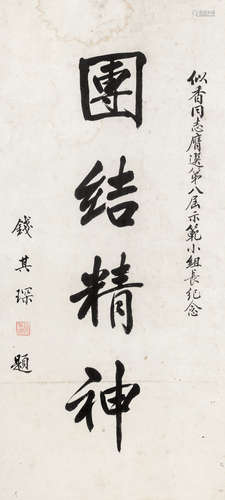 似香同志膺選第八屆示範小組長紀念
團結精神
錢其琛
題